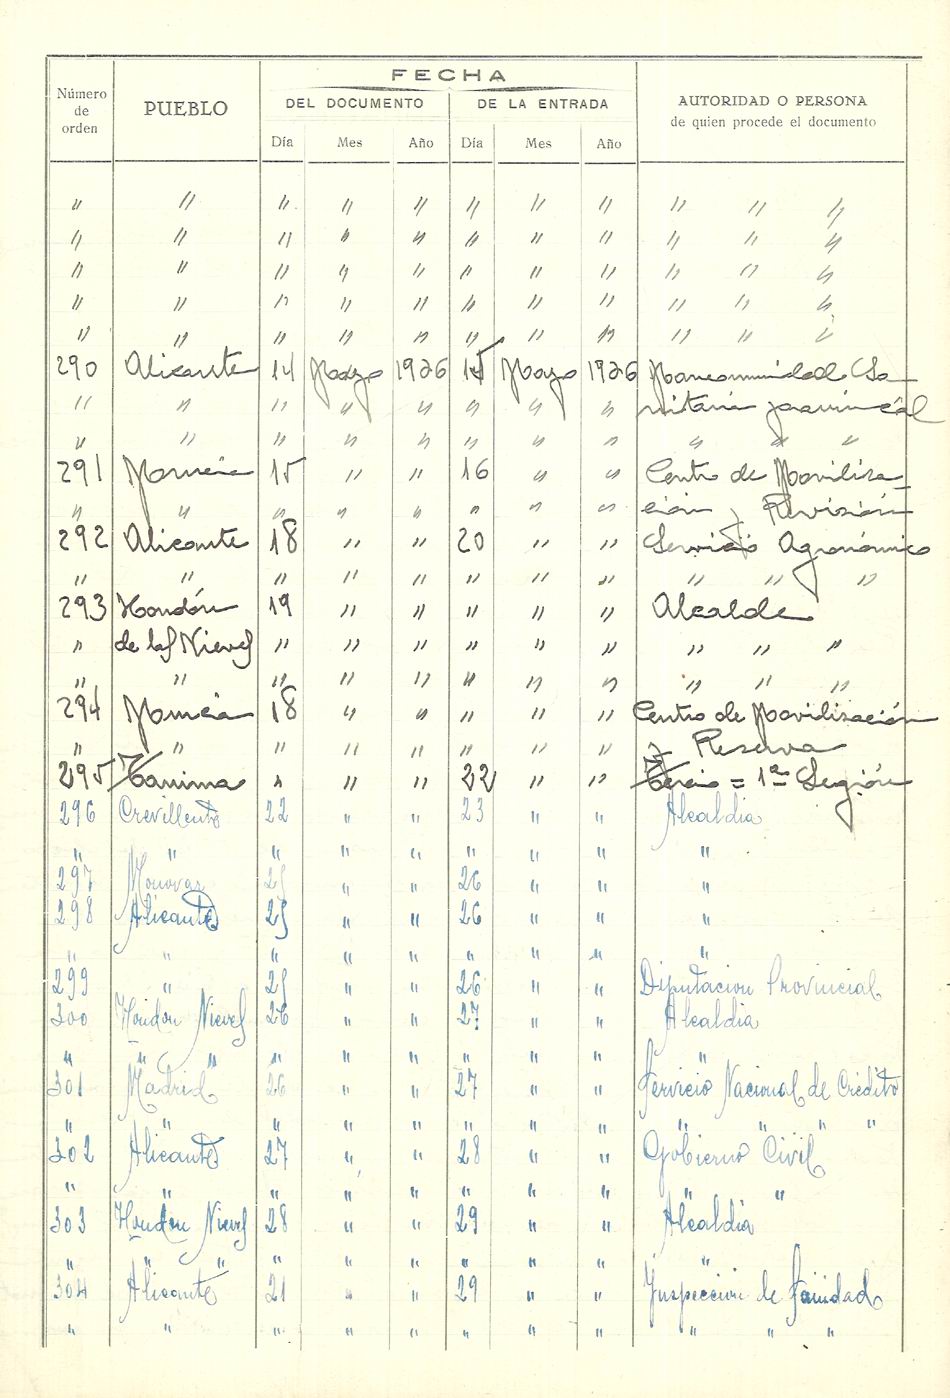 FECHA
Número de orden PUEBLO DEL DOCUMENTO DE LA ENTRADA AUTORIDAD O PERSONA de quien procede el documento
Día Mes Año Día Mes Año
" " " " " " " " " " "
" " " " " " " " " " "
" " " " " " " " " " "
" " " " " " " " " " "
" " " " " " " " " " "
290 Alicante 14 Mayo 1926 15 Mayo 1926 Mancomunidad Sa-
" " " " " " " " nitaria provincial
" " " " " " " " " " "
291 Murcia 15 " " 16 " " Centro de Moviliza-
" " " " " " " " ción y Revisión
292 Alicante 18 " " 20 " " Servicio Agronómico
" " " " " " " " " " "
293 Hondón 19 " " " " " Alcalde
" de las Nieves " " " " " " " " "
" " " " " " " " " " "
294 Murcia 18 " " " " " Centro de Movilización
" " " " " " " " y Reserva
295 " " " 22 " " Tercio = 1ª Legión
296 Crevillente 22 " " 23 " " Alcaldia
" " " " " " " " "
297 Monovar 25 " " 26 " " "
298 Alicante 25 " " 26 " " "
" " " " " " " " "
299 " 25 " " 26 " " Diputacion Provincial
300 Hondon Nieves 26 " " 27 " " Alcaldia
" " " " " " " " " "
301 Madrid 26 " " 27 " " Servicio Nacional de Crédito
" " " " " " " " " " " "
302 Alicante 27 " " 28 " " Gobierno Civil
" " " " " " " " " "
303 Hondon Nieves 28 " " 29 " " Alcaldia
" " " " " " " " " "
304 Alicante 21 " " 29 " " Inspeccion de Sanidad
" " " " " " " " " " "